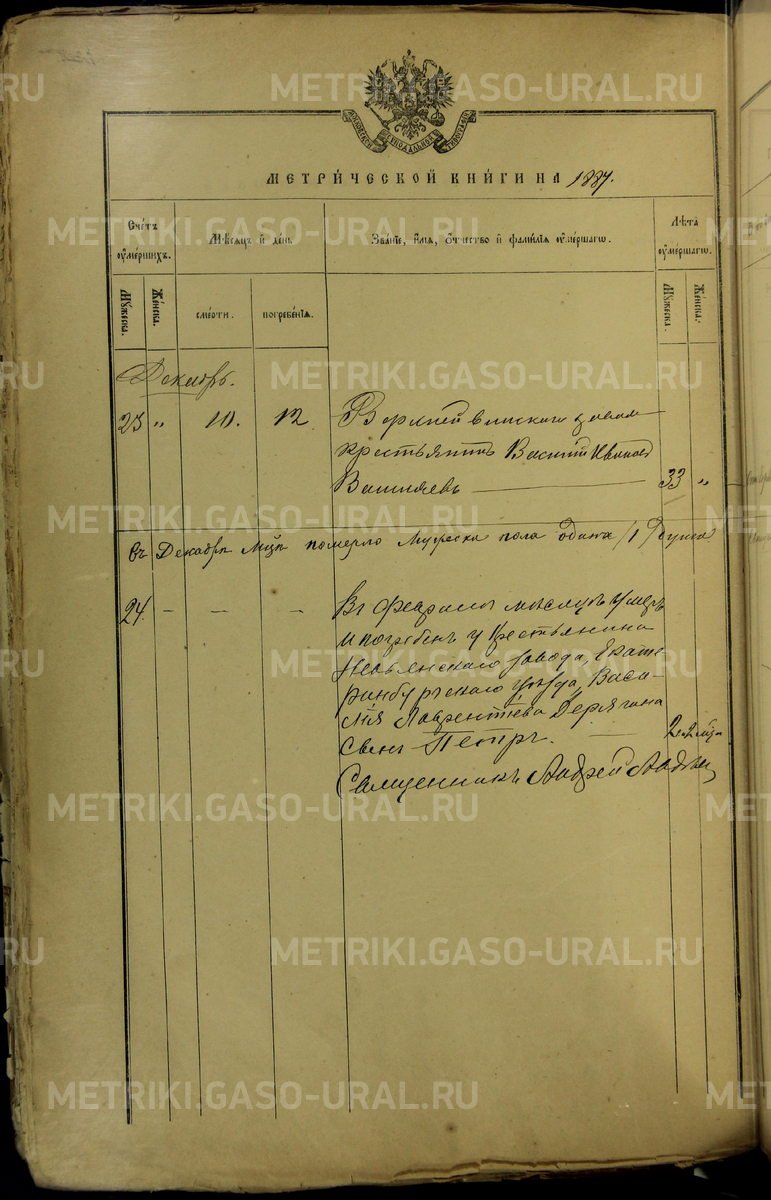 МОСКОВСКОЙ СѴНОДАЛЬНОЙ ТИПОГРАФІИ
МЕТРИ́ЧЕСКОЙ КНИ́ГИ НА 1887.
Сче́тъ ᲂу҆ме́ршихъ.
Мѣ́сяцъ и҆ де́нь
Зва́нїе, и҆́мѧ, ѻ҆́тчество и҆ фами́лїѧ ᲂу҆ме́ршагѡ.
Лѣ́та ᲂу҆ме́ршагѡ.
Му́жеска.
Же́нска.
сме́рти.
погребе́нїѧ.
Му́жеска
Же́нска.
Декабрь.
23 " 10. 12 Верхнейвинскаго завода
крестьянинъ Василий Иванов
Вашляевъ 33 "
въ Декабрѣ м-цѣ померло мужеска пола одинъ /1/ душа
24. - - - Въ Феврале месяцѣ умеръ
и погребенъ у крестьянина
Невьянскаго завода, Екате
ринбургскаго уѣзда, Васи-
лія Лаврентьева Дерягина
сынъ Петръ. 2 м-ца
Священникъ Андрей
METRIKI.GASO-URAL.RU